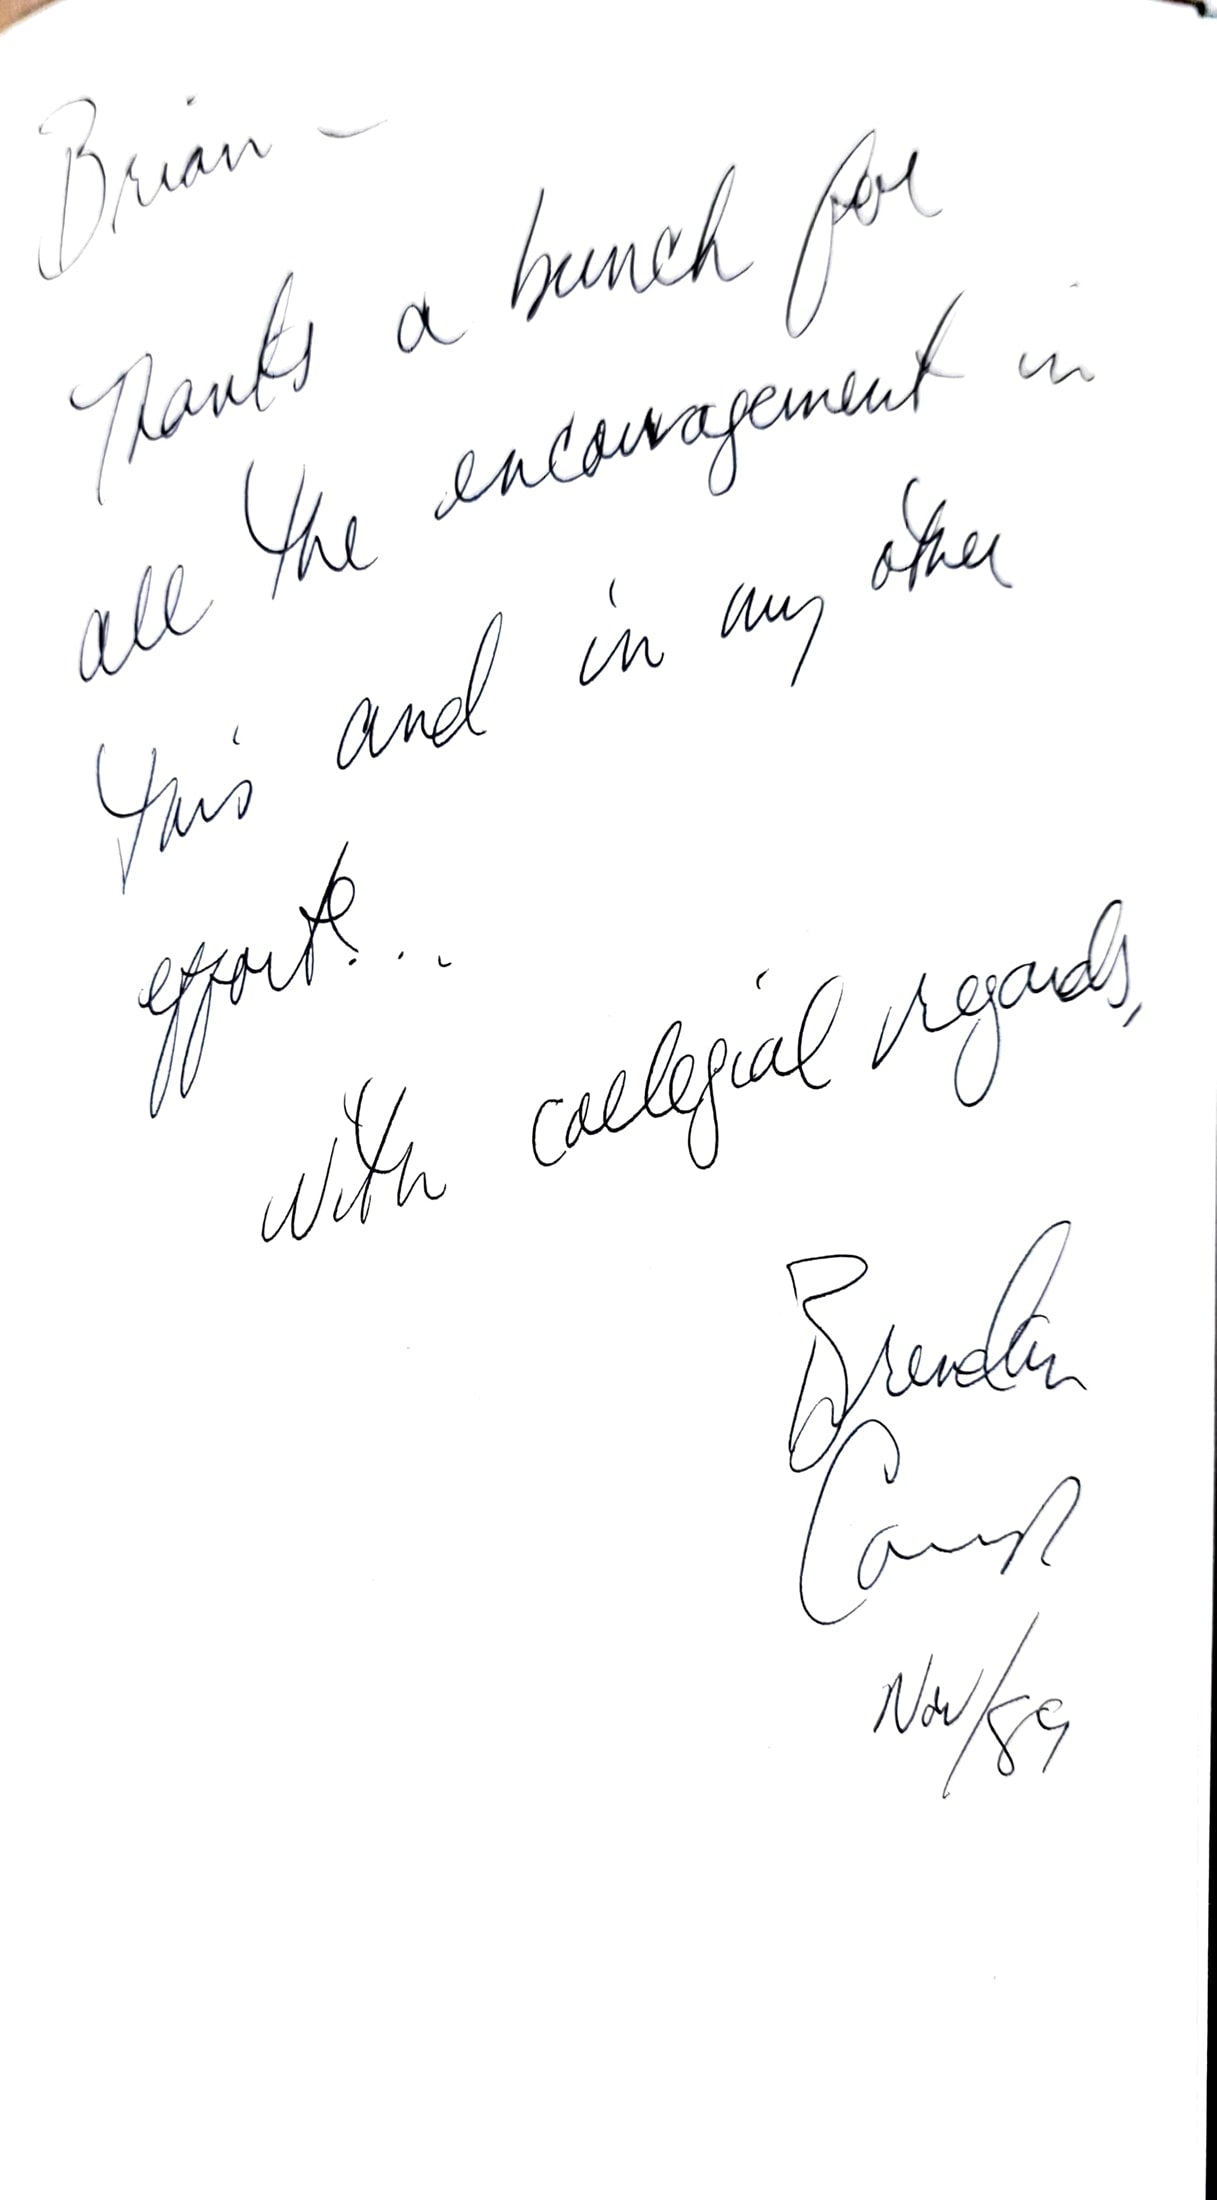 Brian –
Thanks a bunch for
all the encouragement in
this and in my other
efforts...
with collegial regards,
Brendan
Nov/89